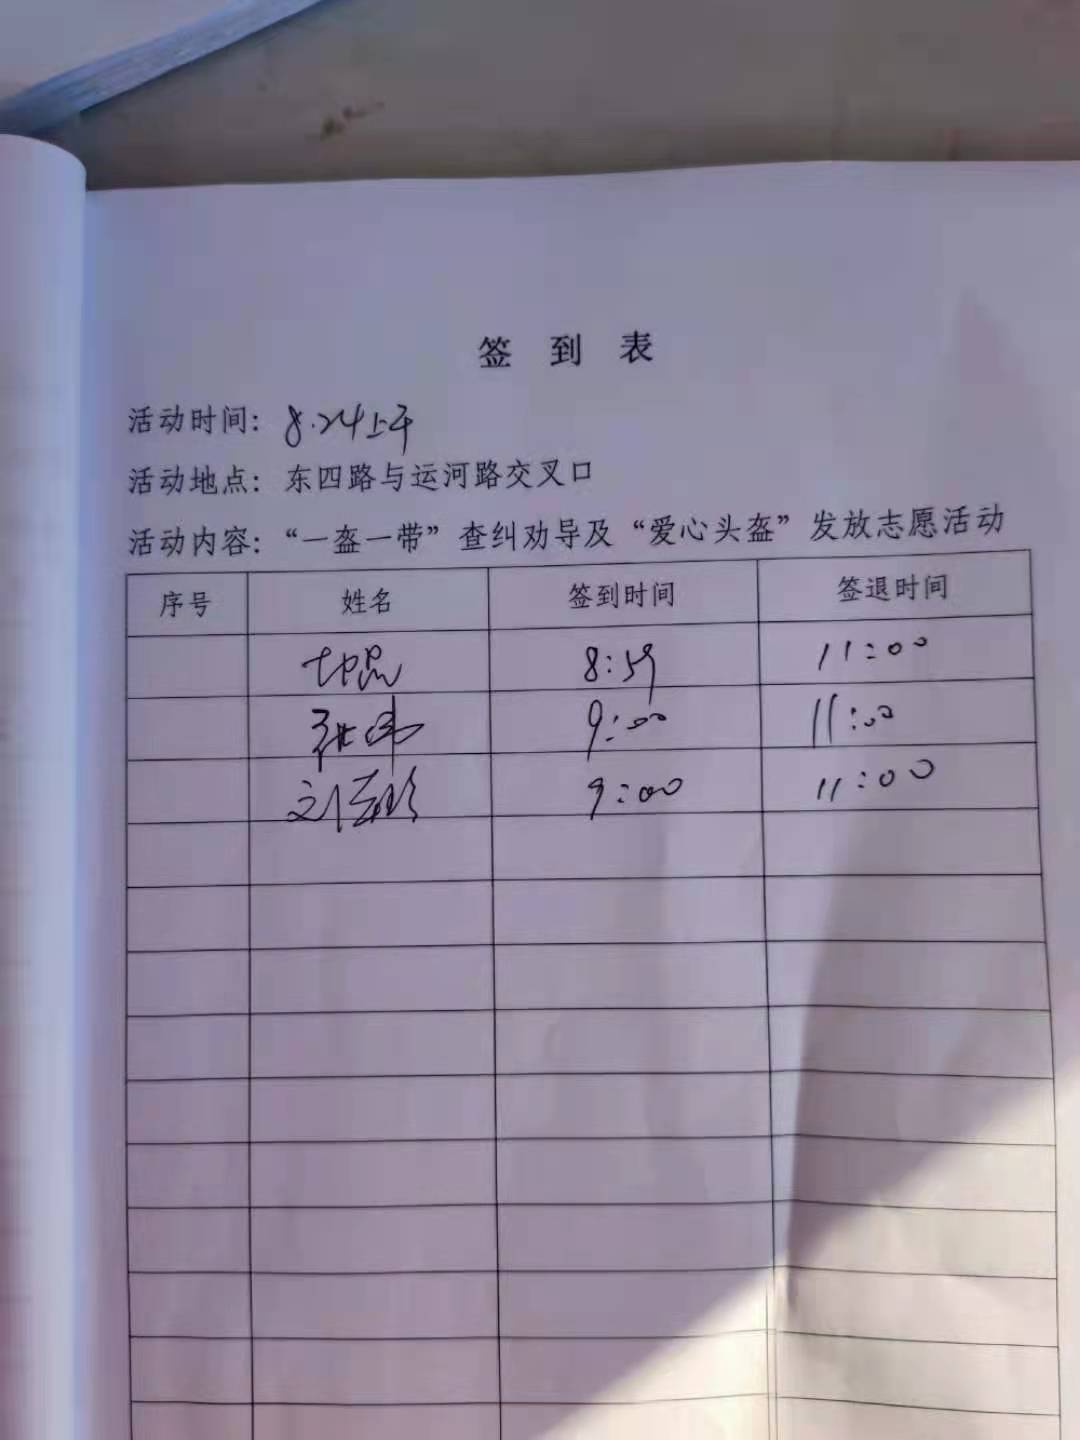 签 到 表
活动时间：8.24上午
活动地点：东四路与运河路交叉口
活动内容：“一盔一带”查纠劝导及“爱心头盔”发放志愿活动
序号 姓名 签到时间 签退时间
8:59 11:00
张伟 9:00 11:00
刘 9:00 11:00